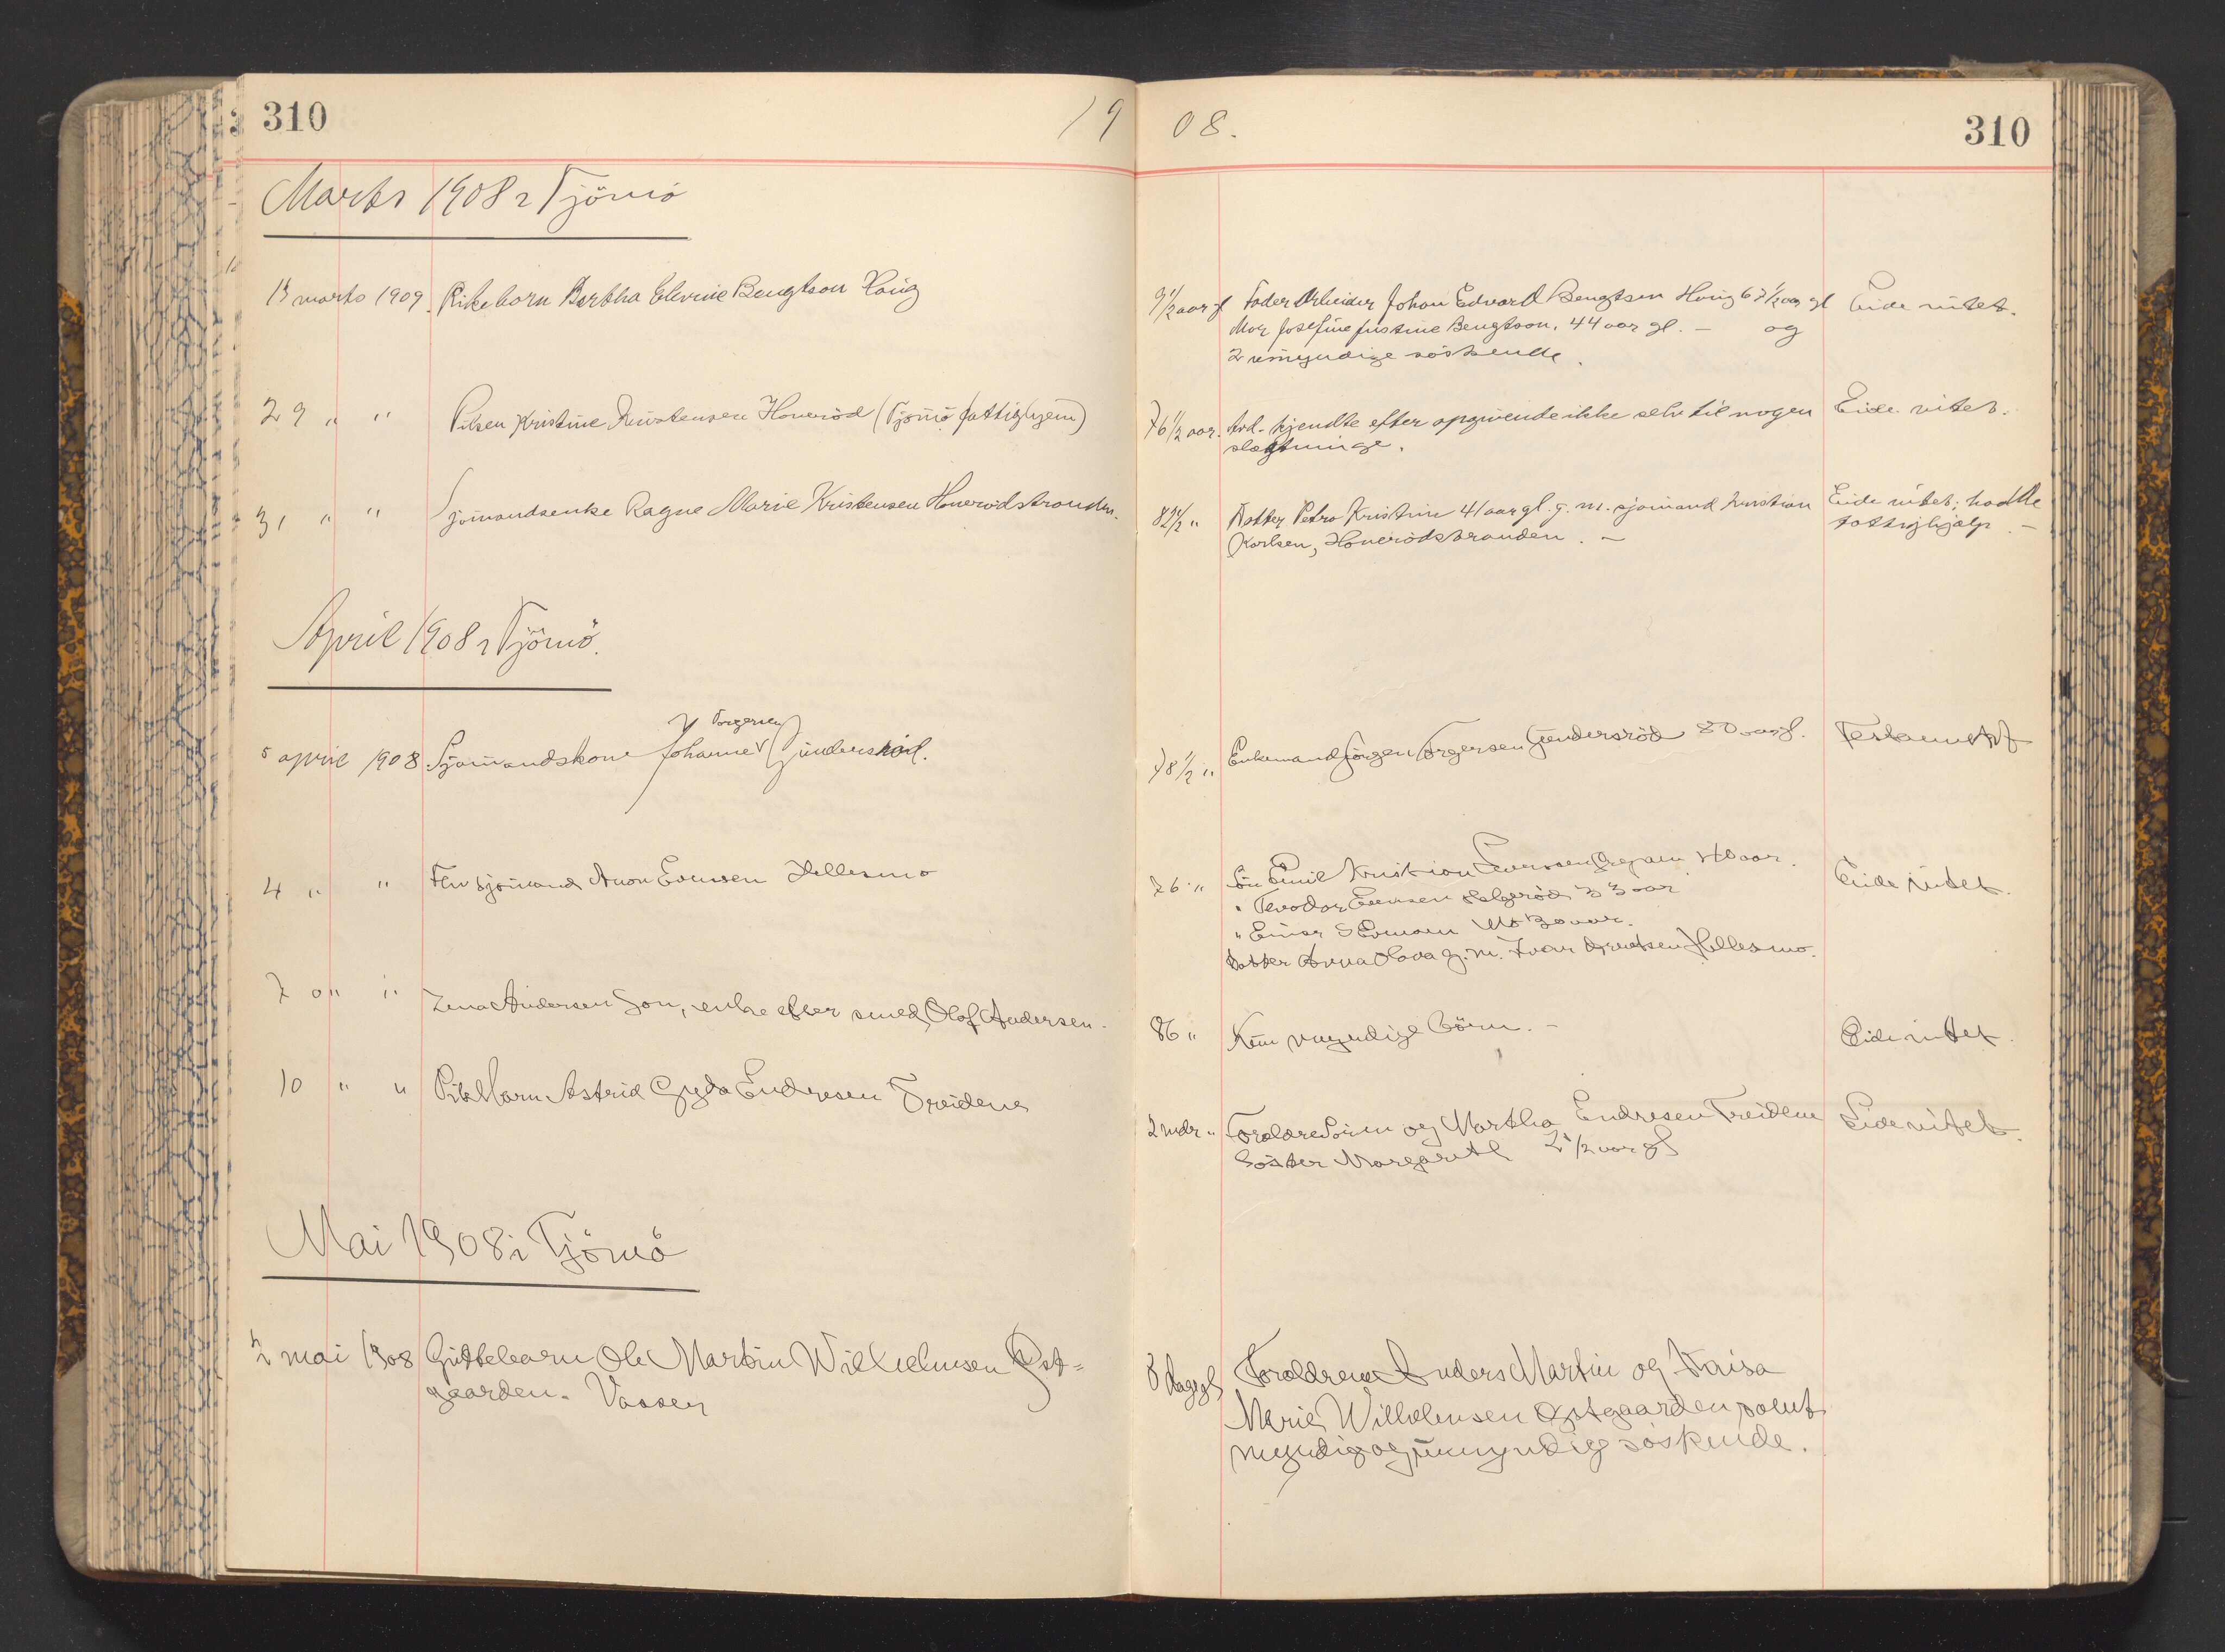 310
19 08.
310
Marts 1908 i Tjömö
13 marts 1909. Pikebarn Bertha Elevine Bengtson Haug
9 1/2 aar gl Fader Arbeider Johan Edvard Bengtsen Haug 67 1/2 aar gl
Mor Josefine Justine Bengtson, 44 aar gl. – og
2 umyndige söskende.
Eide intet.
29 " " Piken Kristine Kristensen Honeröd (Tjömö fattighjem)
76 1/2 aar. Avd. kjendte efter opgivende ikke selv til nogen
slegtninge.
Eide intet.
31 " " Sjömandsenke Ragne Marie Kristensen Honerödstranden.
82 1/2 " Datter Petra Kristine 41 aar gl. g. m. sjömand Kristian
Karlsen, Honerödstranden. –
Eide intet; hadde
fattighjælp –
April 1908 i Tjömö.
5 april 1908 Sjömandskone Johanne Torgersen Gunderseröd.
78 1/2 " Enkemand Jörgen Torgersen Gunderseröd 80 aar gl.
Testament
4 " " Fhv sjömand Aron Evensen Hellesmo
76 " Sön Emil Kristian Evensen 40 aar.
" Teodor Evensen Helgeröd 33 aar
" Einar S Evensen Mo 30 aar.
Datter Anna Olava g. m. Ivar Hellesmo.
Eide intet.
7 " " Lena Andersen Son, enke efter smed Olaf Andersen.
86 " Kun myndige börn. –
Eide intet.
10 " " Pikebarn Astrid Gyda Endresen Treidene
2 mdr " Foraldre Sören og Martha Endresen Treidene
Söster Margareth 2 1/2 aar gl
Eide intet.
Mai 1908 i Tjömö
2 mai 1908 Guttebarn Ole Martin Wilhelmsen Öst=
gaarden. Vassen
8 dage gl Foraldrene Anders Martin og Kaisa
Marie Wilhelmsen Östgaarden samt
myndig og umyndig söskende.